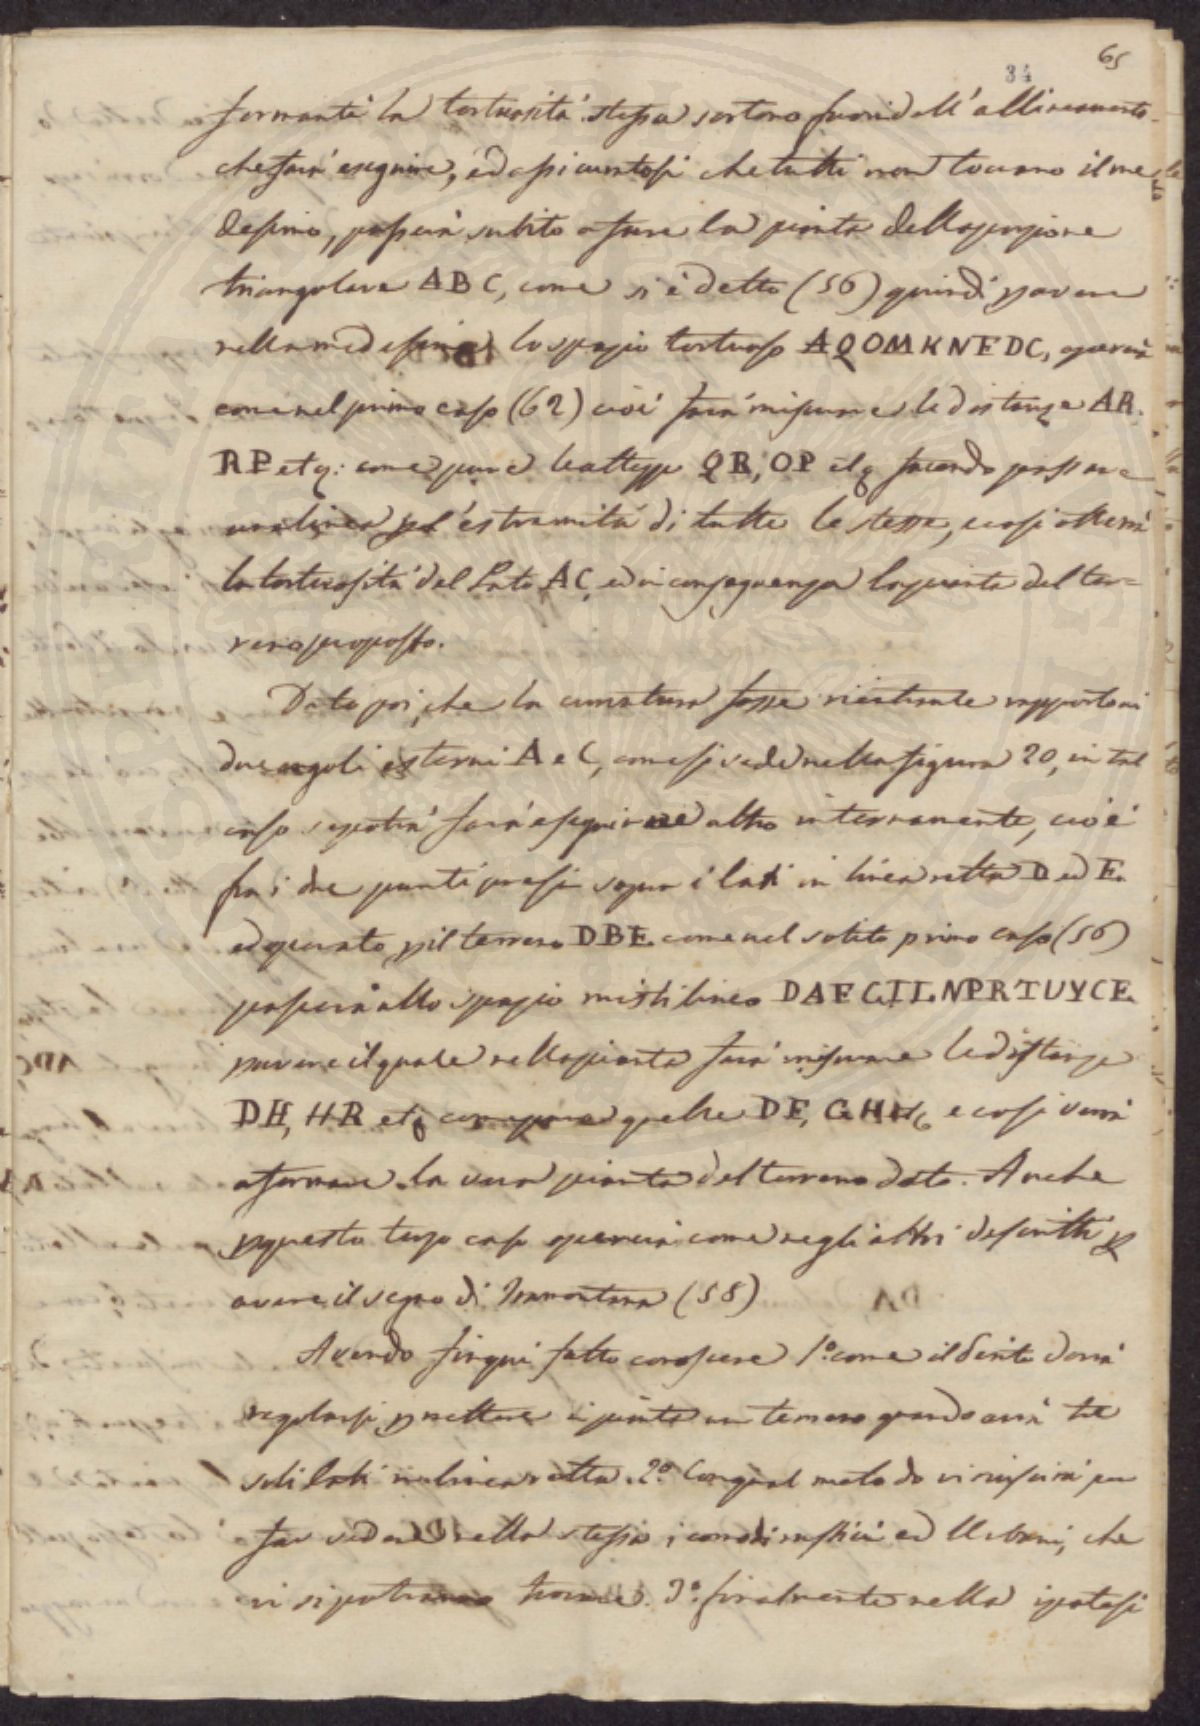 65
34
formanti la tortuosità stessa sortono fuori dell'allineamento
che farà eseguire, ed assicuratosi che tutti non toccano il me
desimo, passerà subito a fare la pianta dell'aspensione
triangolare ABC, come si è detto (56) quindi p avere
nella medesima lo spazio tortuoso AQOMKNFDC, opererà
come nel primo caso (62) cioè farà misurare le distanze AR.
RP etc: come pure le altezze QR, OP etc facendo passare
una linea pel'estremità di tutte le stesse, e così otterrà
la tortuosità del Lato AC, ed in conseguenza la pianta del ter=
reno proposto.
Dato poi, che la curvatura fosse rientrante rapporto ai
due angoli esterni A e C, come si vede nella figura 20, in tal
caso se potrà farà eseguirne altro internamente, cioè
fra i due punti presi sopra i lati in linea retta D ed E.
ed operato p il terreno DBE. come nel solito primo caso (56)
passerà allo spazio mistilineo DAFGILNPRTUYCE.
p avere il quale nella pianta farà misurare le distanze
DH, HR etc come pure quelle DF, GH etc e così verrà
a formare la vera pianta del terreno dato. Anche
p questo terzo caso opererà come negli altri descritti p
avere il segno di Tramontana (58)
Avendo fin qui fatto conoscere 1.o come il Perito dovrà
regolarsi p mettere in pianta un terreno quando avrà tre
soli Lati in linea retta. 2.o Con qual metodo vi riuscirà per
far vedere nella stessa i comodi rustici ed Urbani, che
vi si potranno trovare. 3.o finalmente nella ipotesi